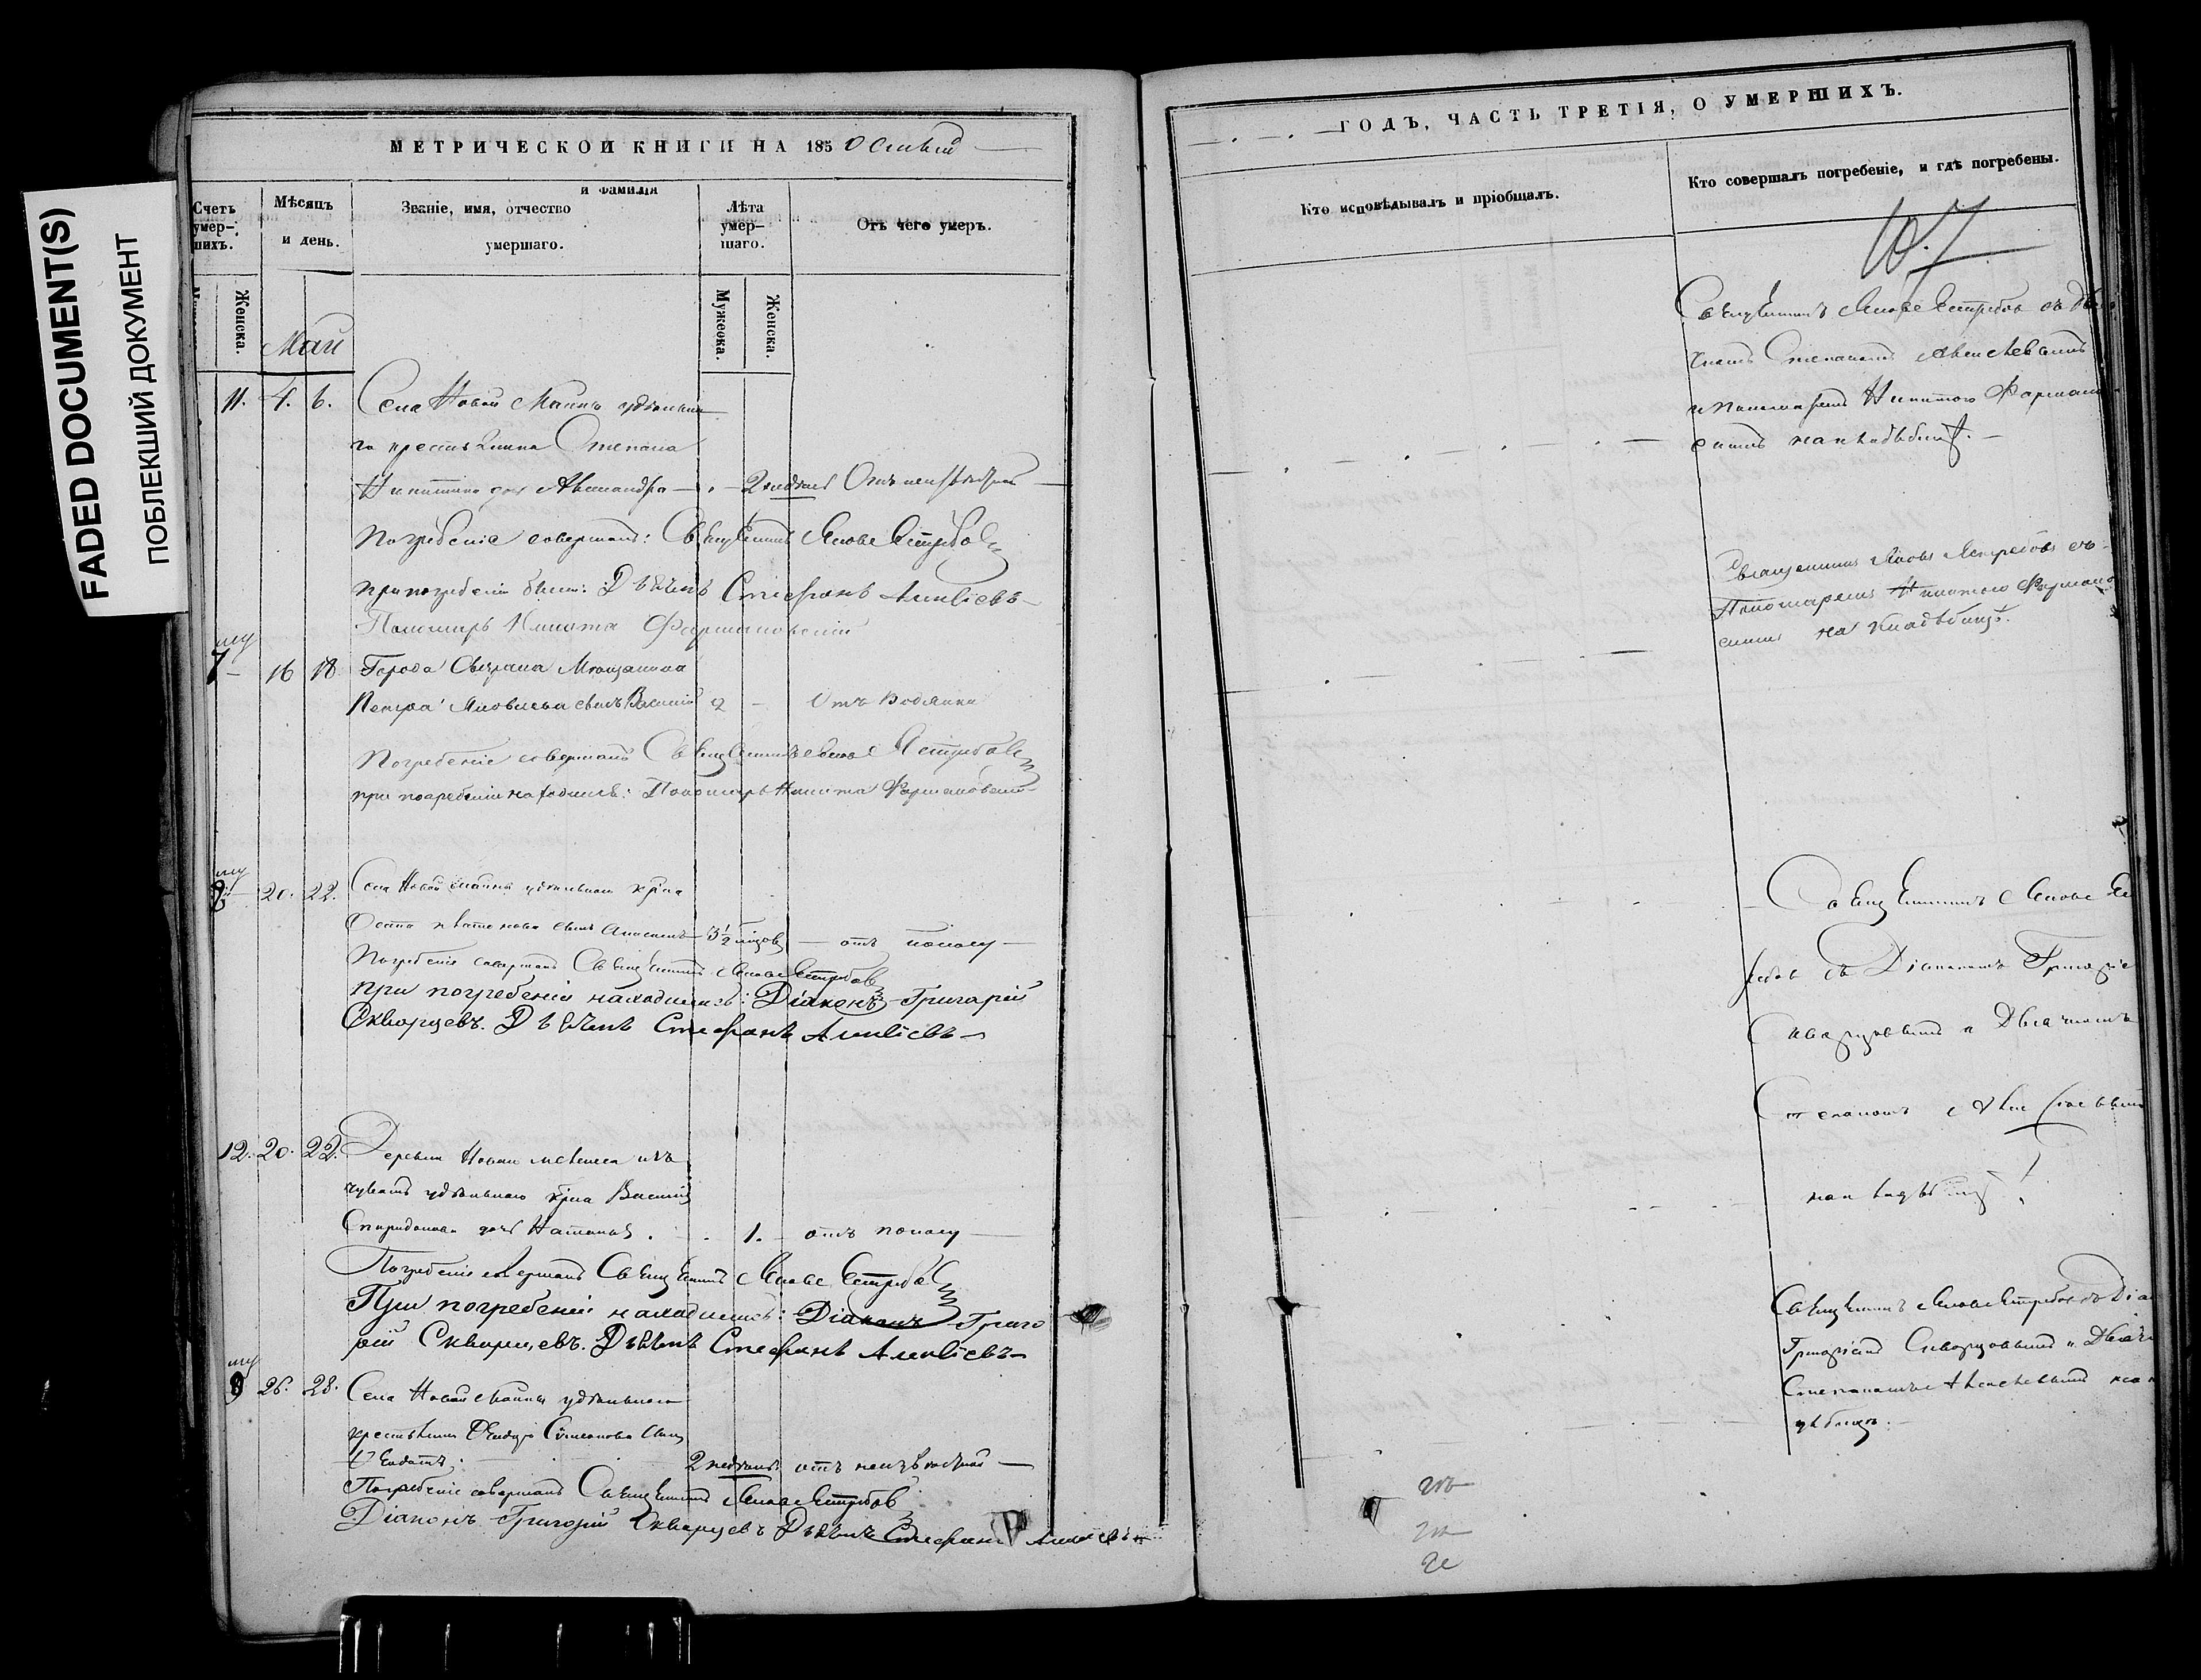 FADED DOCUMENT(S)
ПОБЛЕКШИЙ ДОКУМЕНТ
МЕТРИЧЕСКОЙ КНИГИ НА 185
Счетъ умер- шихъ.
Мѣсяцъ и день.
Званіе, имя, отчество и фамилія умершаго.
Лѣта умер- шаго.
Отъ чего умеръ.
Женска.
Мужеска.
Женска.
Май
11. 4. 6. Села Новой Майны удѣльна
го крестьянина Степана
Никитина дочь Александра — 2 недель Отъ неизвѣстной
Погребеніе совершалъ: Священникъ Яковъ Ястребовъ
при погребеніи были: Дьячекъ Стефанъ Алексіевъ
Пономарь Никита Фармаковскій
7 16 18 Города Сызрана Мѣщанина
Петра Яковлева сынъ Василій 2 — Отъ водянки
Погребеніе совершалъ Священникъ Яковъ Ястребовъ
при погребеніи находился: Пономарь Никита Фармаковскій
8 20. 22. Села Новой Майны удѣльнаго крна
сынъ 3 1/2 годов — отъ поносу —
Погребеніе совершалъ Священникъ Яковъ Ястребовъ
при погребеніи находились: Діаконъ Григорій
Скворцевъ. Дьячекъ Стефанъ Алексіевъ
12. 20. 22. Деревни Новой изъ
чувашъ удѣльнаго крна Василія
Спиридонова дочь Наталья . 1. отъ поносу —
Погребеніе совершалъ Священникъ Яковъ Ястребовъ
При погребеніи находились: Діаконъ Григо
рій Скворцевъ. Дьячекъ Стефанъ Алексіевъ
9 26. 28. Села Новой Майны удѣльнаго
крестьянина Симеонова сынъ
2 недель отъ неизвѣстной —
Погребеніе совершалъ Священникъ Яковъ Ястребовъ
Діаконъ Григорій Скворцевъ Дьячекъ Стефанъ Алексіевъ
ГОДЪ, ЧАСТЬ ТРЕТІЯ, О УМЕРШИХЪ.
Кто исповѣдывалъ и пріобщалъ.
Кто совершалъ погребеніе, и гдѣ погребены.
Священникъ Яковъ Ястребовъ съ Дья
чкомъ Степаномъ Алексѣевымъ
и пономаремъ Никитою Фармаков
скимъ на кладбищѣ.
Священникъ Яковъ Ястребовъ съ
Пономаремъ Никитою Фармаков
скимъ на кладбищѣ.
Священникъ Яковъ Яст
ребовъ съ Діакономъ Григоріе
Скворцовымъ и Дьячкомъ
Степаномъ Алексѣевымъ
на кладбищѣ
Священникъ Яковъ Ястребовъ съ Діак
Григоріемъ Скворцовымъ и Дьячк
Степаномъ Алексѣевымъ на к